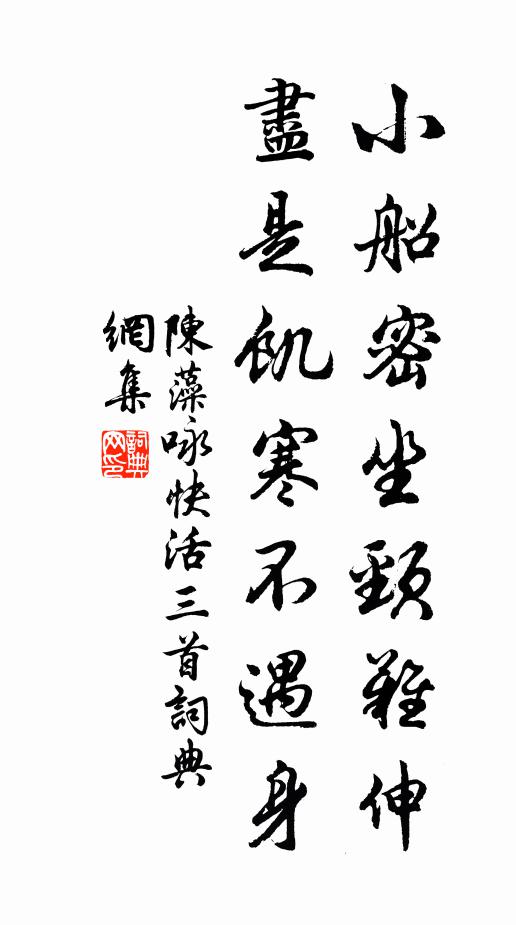 小船密坐頸難伸
盡是飢寒不遇身
陳藻咏快活三首詞典
網集
詞典
网印